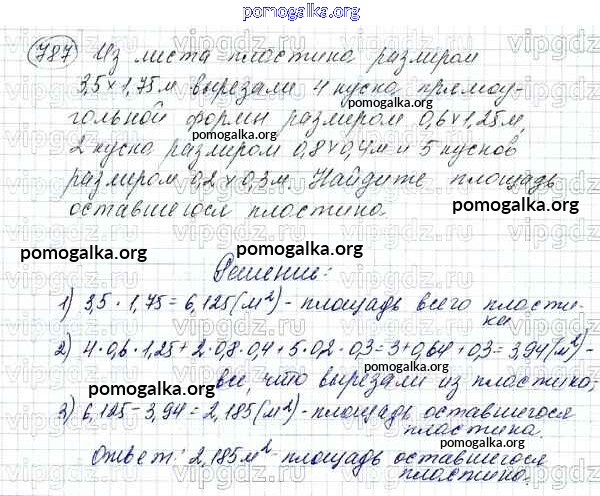 pomogalka.org
787 Из листа пластика размером
3,5 × 1,75 м вырезали 4 куска прямоу-
гольной формы размером 0,6 × 1,25 м,
2 куска размером 0,8 × 0,4 м и 5 кусков
размером 0,2 × 0,3 м. Найдите площадь
оставшегося пластика.
Решение:
1) 3,5 · 1,75 = 6,125 (м²) - площадь всего пласти-
ка
2) 4 · 0,6 · 1,25 + 2 · 0,8 · 0,4 + 5 · 0,2 · 0,3 = 3 + 0,64 + 0,3 = 3,94 (м²) -
все, что вырезали из пластика;
3) 6,125 - 3,94 = 2,185 (м²) - площадь оставшегося
пластика.
Ответ: 2,185 м² - площадь оставшегося
пластика.
pomogalka.org
pomogalka.org
pomogalka.org
pomogalka.org
pomogalka.org
pomogalka.org
pomogalka.org
pomogalka.org
pomogalka.org
pomogalka.org